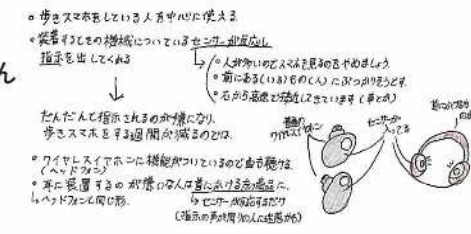 。歩きスマホをしている人を中心に使える
。装着するとその機械についているセンサーが反応し
指示を出してくれる
。人が多いのでスマホを見るのをやめましょう。
。前にある(いる)もの(人)にぶつかりそうです。
。右から高速で接近してきています(車とか)
ん
だんだんと指示されるのが嫌になり、
歩きスマホをする週間が減るのでは。
。ワイヤレスイヤホンに機能がついているので曲も聴ける
(ヘッドフォン)
。耳に装着するのが嫌いな人は首にかける
ヘッドフォンと同じ形。
センサーが反応するだけ
(指示の声が周りの人に迷惑かも)
ワイヤレスイヤホン
センサーが
入ってる